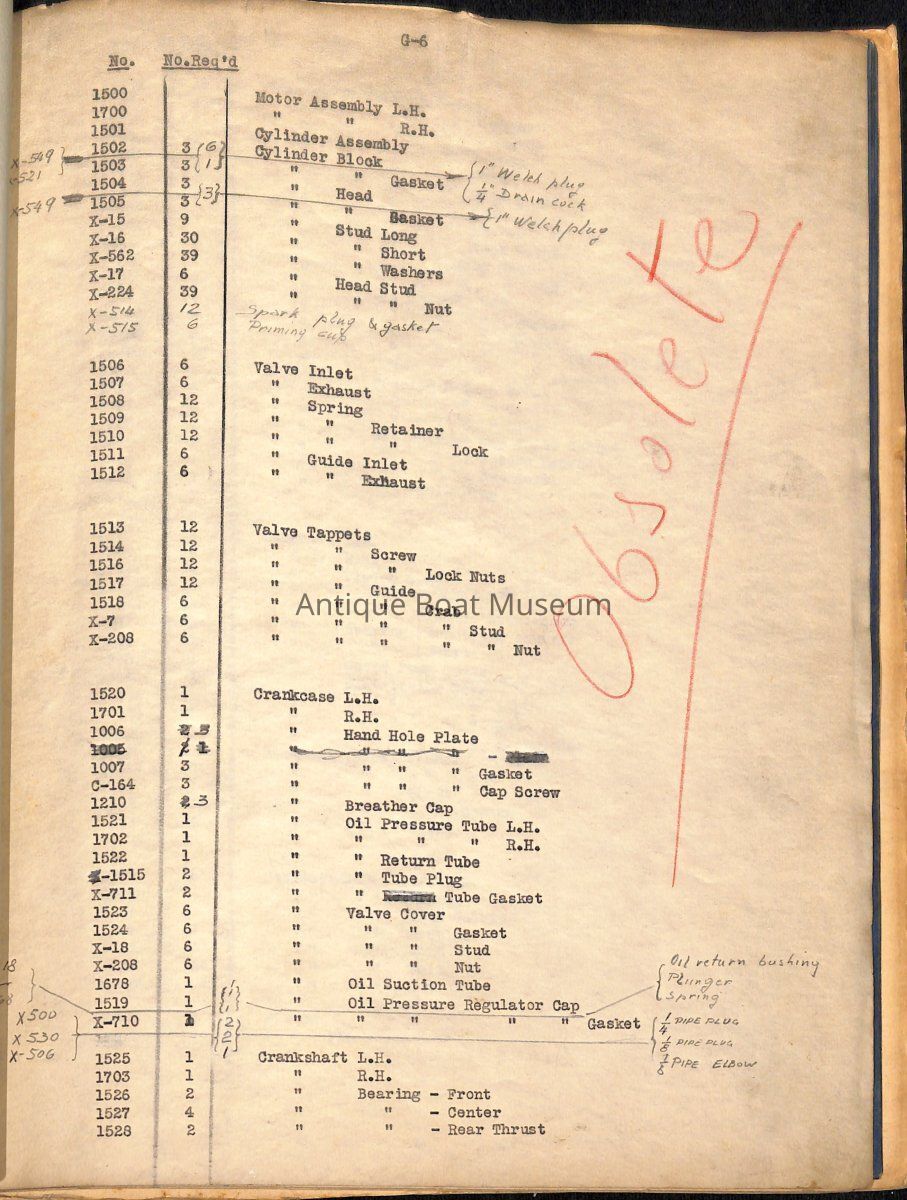 G-6
No. No.Req'd
1500 Motor Assembly L.H.
1700 " " R.H.
1501 Cylinder Assembly
1502 3 {6 Cylinder Block
X-549
1503 3 {1 " " Gasket { 1" Welch plug
1504 3 " Head 1/4" Drain cock
X-549
1505 3 {3} " " Gasket { 1" Welch plug
X-15 9 " Stud Long
X-16 30 " " Short
X-562 39 " " Washers
X-17 6 " Head Stud
X-224 39 " " " Nut
X-514 12 Spark plug & gasket
X-515 6 Priming cup
Obsolete
1506 6 Valve Inlet
1507 6 " Exhaust
1508 12 " Spring
1509 12 " " Retainer
1510 12 " " " Lock
1511 6 " Guide Inlet
1512 6 " " Exhaust
1513 12 Valve Tappets
1514 12 " " Screw
1516 12 " " " Lock Nuts
1517 12 " " Guide
1518 6 " " " Crab
X-7 6 " " " " Stud
X-208 6 " " " " " Nut
Antique Boat Museum
1520 1 Crankcase L.H.
1701 1 " R.H.
1006 2 3 " Hand Hole Plate
1005 1 " " " " -
1007 3 " " " " Gasket
C-164 3 " " " " Cap Screw
1210 2 3 " Breather Cap
1521 1 " Oil Pressure Tube L.H.
1702 1 " " " " R.H.
1522 1 " " Return Tube
X-1515 2 " " Tube Plug
X-711 2 " " Return Tube Gasket
1523 6 " Valve Cover
1524 6 " " " Gasket
X-18 6 " " " Stud
X-208 6 " " " Nut
1678 1 " Oil Suction Tube
1519 1 " Oil Pressure Regulator Cap
X-710 1 " " " " " " Gasket
Oil return bushing
Plunger
Spring
X500 2 1/4 PIPE PLUG
X530 2 1/8 PIPE PLUG
X-506 1 1/8 PIPE ELBOW
1525 1 Crankshaft L.H.
1703 1 " R.H.
1526 2 " Bearing - Front
1527 4 " " - Center
1528 2 " " - Rear Thrust